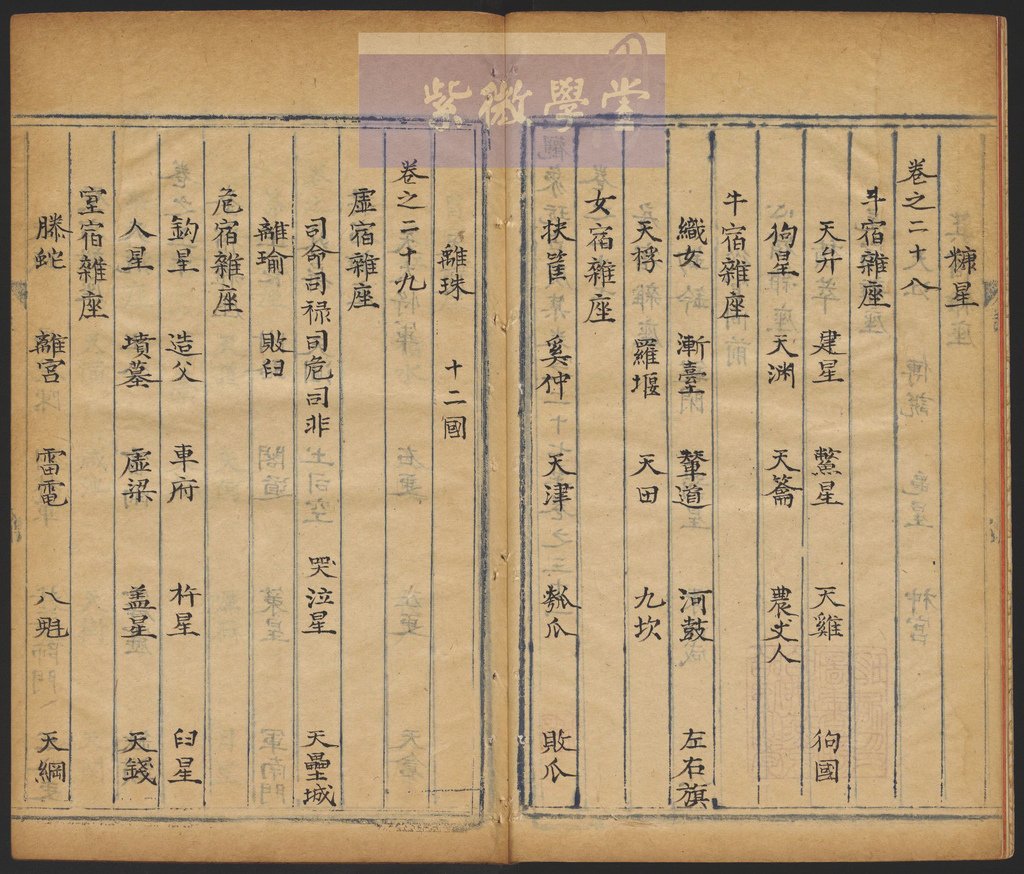 紫微學堂
糠星
卷之二十八
斗宿雜座
天弁 建星 鱉星 天雞 狗國
狗星 天渊 天籥 農丈人
牛宿雜座
織女 漸臺 輦道 河鼓 左右旗
天桴 羅堰 天田 九坎
女宿雜座
扶筐 奚仲 天津 瓠瓜 敗瓜
離珠 十二國
卷之二十九
虛宿雜座
司命司禄司危司非 哭泣星 天壘城
離瑜 敗臼
危宿雜座
鈎星 造父 車府 杵星 臼星
人星 墳墓 虛梁 盖星 天錢
室宿雜座
螣蛇 離宮 雷電 八魁 天綱